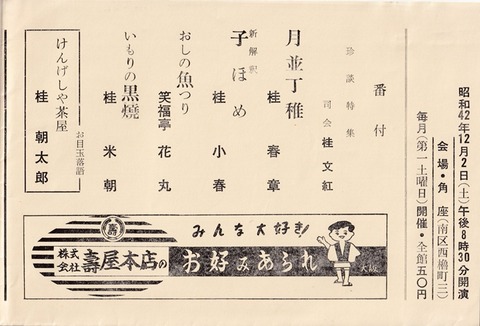 昭和42年12月2日(土)午後8時30分開演
会場・角座(南区西櫓町三)
毎月(第一土曜日)開催・全館五〇円
番付
珍談特集
司会 桂文紅
月並丁稚
桂春章
新解釈
子ほめ
桂小春
おしの魚つり
笑福亭花丸
いもりの黒焼
桂米朝
お目玉落語
けんげしや茶屋
桂朝太郎
みんな大好き!
株式会社 壽屋本店の
お好みあられ
大阪